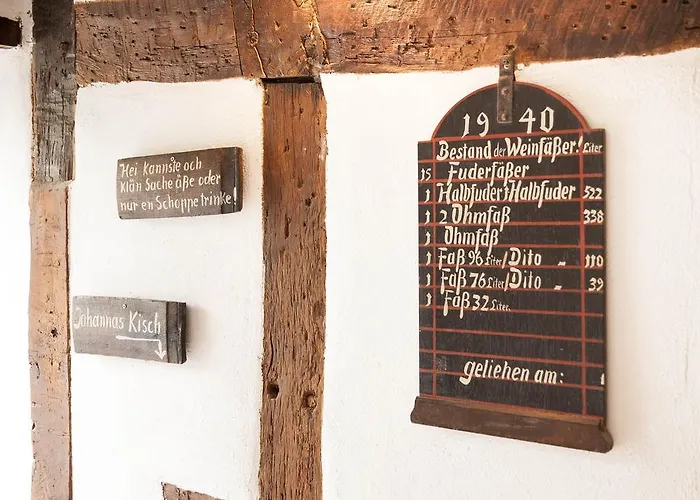 Hei kannste och
klän Sache äße oder
nur en Schoppe trinke!
Johannas Kisch
1940
Bestand der Weinfäßer. Liter
15 Fuderfäßer
1 Halbfuder 1 Halbfuder 522
1 2 Ohmfaß 338
1 Ohmfaß
1 Faß 96 Liter / Dito „ 110
1 Faß 76 Liter / Dito „ 39
1 Faß 32 Liter.
geliehen am: